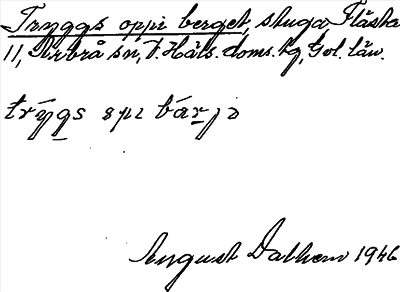 Tryggs oppi berget, stuga Flästa
11, Arbrå sn, V. Häls. doms. tg, Gvl. län.
trýgs opi bárjə
August Dalhem 1946